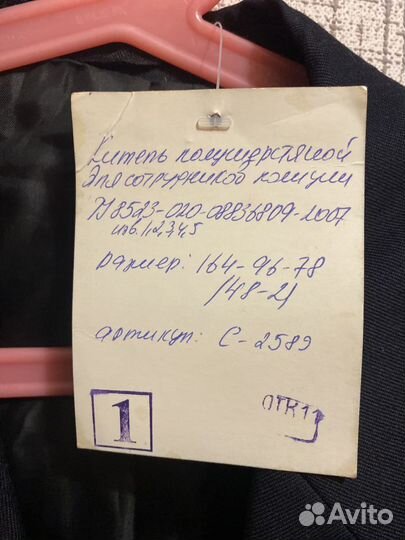 Китель полушерстяной
для сотрудников полиции
ТУ 8523-020-08836809-2007
изб. 1,2,3,4,5
размер: 164-96-78
/48-2/
артикул: С-2589
1
ОТК 11
Avito